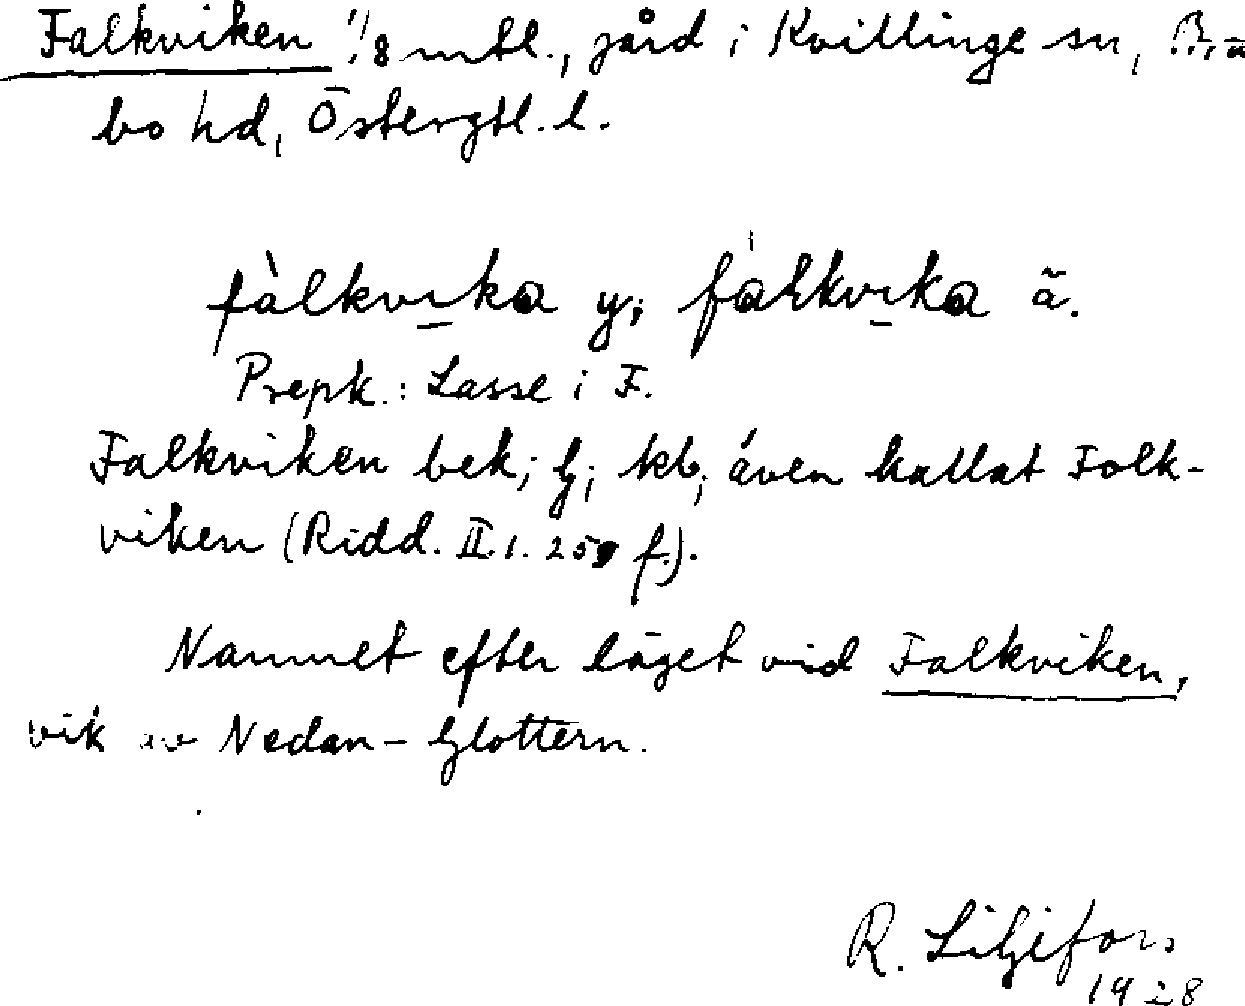 Falkviken 1/8 mtl., gård i Kvillinge sn, Brå
bo hd, Östergtl. l.
fàlkvıka y; fàlkvıka ä.
Prepk.: Lasse i F.
Falkviken bek; G; kb; även kallat Folk-
viken (Ridd. II. 1. 259 f.).
Namnet efter läget vid Falkviken,
vik av Nedan-Glottern.
R. Liljefors
1928